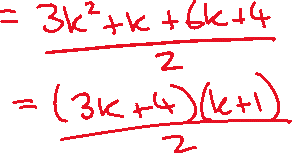 = 3k²+k+6k+4 / 2
= (3k+4)(k+1) / 2